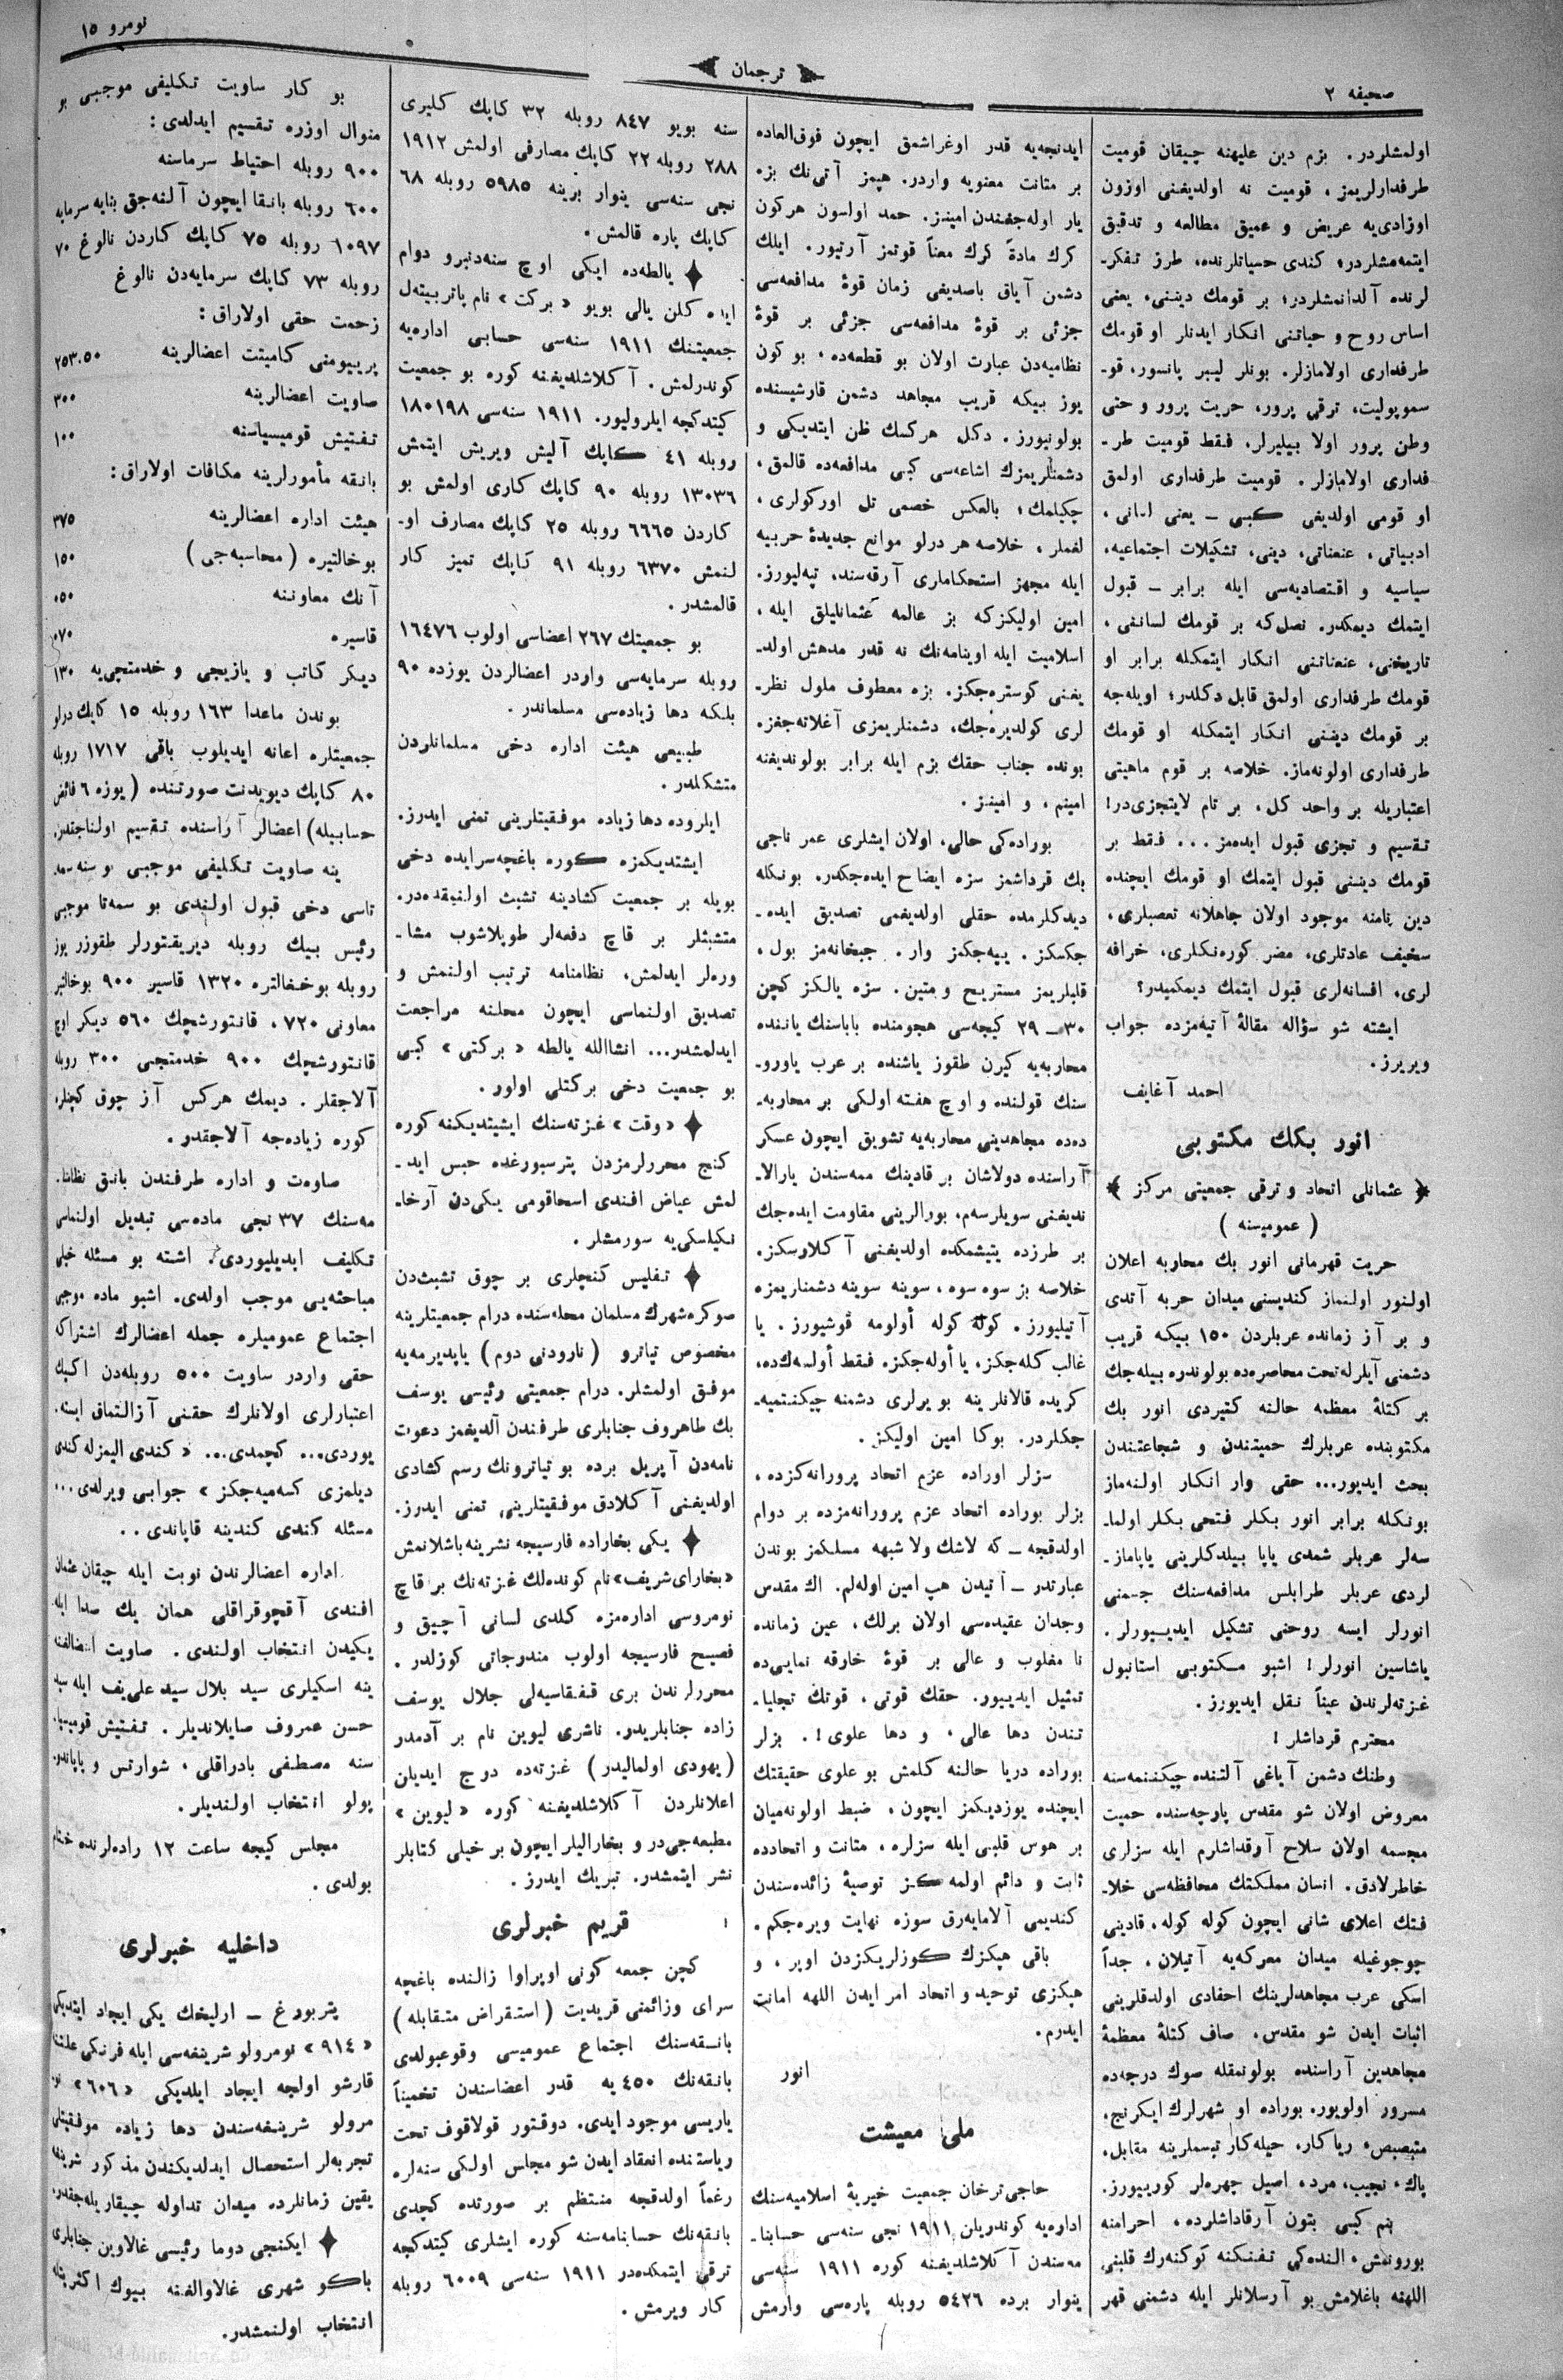 صحيفه ٢
ترجمان
نومرو ١٥
اولمشلردر. بزم دين عليهنه چيقان قوميت
طرفدارلريمز، قوميت نه اولديغنی اوزون
اوزادی‌يه عريض و عميق مطالعه و تدقيق
ايتمه‌مشلردر؛ كندی حسياتلرنده، طرز تفكر-
لرنده آلدانمشلردر؛ بر قومك دينی، يعنی
اساس روح و حياتنی انكار ايدنلر او قومك
طرفداری اولامازلر. بونلر ليبر پانسور، قو-
سموپوليت، ترقی پرور، حريت پرور و حتی
وطن پرور اولا بيليرلر، فقط قوميت طر-
فداری اولامازلر. قوميت طرفداری اولمق
او قومی اولديغی كبی — يعنی لسانی،
ادبياتی، عنعناتی، دينی، تشكيلات اجتماعيه،
سياسيه و اقتصاديه‌سی ايله برابر — قبول
ايتمك ديمكدر. نصل‌كه بر قومك لسانی،
تاريخنی، عنعناتنی انكار ايتمكله برابر او
قومك طرفداری اولمق قابل دكلدر؛ اويله‌جه
بر قومك دينی انكار ايتمكله او قومك
طرفداری اولونه‌ماز. خلاصه بر قوم ماهيتی
اعتباريله بر واحد كل، بر تام لايتجزی‌در!
تقسيم و تجزی قبول ايده‌مز... فقط بر
قومك دينی قبول ايتمك او قومك ايچنده
دين نامنه موجود اولان جاهلانه تعصبلری،
سخيف عادتلری، مضر كوره‌نكلری، خرافه
لری، افسانه‌لری قبول ايتمك ديمكميدر؟
ايشته شو سؤاله مقالهٔ آتيه‌مزده جواب
ويريرز.
احمد آغايف
انور بكك مكتوبی
عثمانلی اتحاد و ترقی جمعيتی مركز
( عموميسنه )
حريت قهرمانی انور بك محاربه اعلان
اولنور اولنماز كنديسنی ميدان حربه آتدی
و بر آز زمانده عربلردن ١٥٠ بيكه قريب
دشمنی آيلرله تحت محاصره‌ده بولوندره بيله‌جك
بر كتلهٔ معظمه حالنه كتيردی انور بك
مكتوبنده عربلرك حميتندن و شجاعتندن
بحث ايديور... حقی وار انكار اولنه‌ماز
بونكله برابر انور بكلر فتحی بكلر اولما-
سه‌لر عربلر شمدی ياپا بيلدكلرينی ياپاماز-
لردی عربلر طرابلس مدافعه‌سنك جسمنی
انورلر ايسه روحنی تشكيل ايدييورلر.
ياشاسين انورلر! اشبو مكتوبی استانبول
غزته‌لرندن عيناً نقل ايديورز.
محترم قرداشلر!
وطنك دشمن آياغی آلتنده چيكننمه‌سنه
معروض اولان شو مقدس پارچه‌سنده حميت
مجسمه اولان سلاح آرقداشلرم ايله سزلری
خاطرلادق. انسان مملكتك محافظه‌سی خلا-
فتك اعلای شانی ايچون كوله كوله، قادينی
چوجوغيله ميدان معركه‌يه آتيلان، جداً
اسكی عرب مجاهدلرينك احفادی اولدقلرينی
اثبات ايدن شو مقدس، صاف كتلهٔ معظمهٔ
مجاهدين آراسنده بولونمقله صوك درجه‌ده
مسرور اولويور. بوراده او شهرلرك ايكرنج،
متبصبص، رياكار، حيله‌كار تبسملرينه مقابل،
پاك، نجيب، مرد، اصيل چهره‌لر كورييورز.
بنم كبی بتون آرقاداشلرده، احرامنه
بورونمش، النده‌كی تفنكنه كوكنه‌رك قلبنی
اللهنه باغلامش بو آرسلانلر ايله دشمنی قهر
ايدنجه‌يه قدر اوغراشمق ايچون فوق‌العاده
بر متانت معنويه واردر. هپمز آتی‌نك بزه
يار اوله‌جغندن امينز. حمد اولسون هركون
كرك مادةً كرك معناً قوتمز آرتيور. ايلك
دشمن آياق باصديغی زمان قوهٔ مدافعه‌سی
جزئی بر قوهٔ مدافعه‌سی جزئی بر قوهٔ
نظاميه‌دن عبارت اولان بو قطعه‌ده، بوكون
يوز بيكه قريب مجاهد دشمن قارشيسنده
بولونيورز. دكل هركسك ظن ايتديكی و
دشمنلريمزك اشاعه‌سی كبی مدافعه‌ده قالمق،
چكيلمك؛ بالعكس خصمی تل اوركولری،
لغملر، خلاصه هر درلو موانع جديدهٔ حربيه
ايله مجهز استحكاملری آرقه‌سنده تپه‌ليورز.
امين اوليكزكه بز عالمه عثمانليلق ايله،
اسلاميت ايله اوينامه‌نك نه قدر مدهش اولد-
يغنی كوستره‌جكز. بزه معطوف ملول نظر-
لری كولديره‌جك، دشمنلريمزی آغلاته‌جغز.
بونده جناب حقك بزم ايله برابر بولونديغنه
امينم، و امينز.
بوراده‌كی حالی، اولان ايشلری عمر ناجی
بك قرداشمز سزه ايضاح ايده‌جكدر. بونكله
ديدكلرمده حقلی اولديغمی تصديق ايده-
جكسكز. ييه‌جكمز وار. جبخانه‌مز بول،
قلبلريمز مستريح و متين. سزه يالكز كچن
٣٠—٢٩ كيجه‌سی هجومنده باباسنك ياننده
محاربه‌يه كيرن طقوز ياشنده بر عرب ياورو-
سنك قولنده و اوچ هفته اولكی بر محاربه-
ده‌ده مجاهدينی محاربه‌يه تشويق ايچون عسكر
آراسنده دولاشان بر قادينك ممه‌سندن يارالا-
نديغنی سويلرسه‌م، بورالرينی مقاومت ايده‌جك
بر طرزده يتيشمكده اولديغنی آكلارسكز.
خلاصه بز سوه سوه، سوينه سوينه دشمناريمزه
آتيليورز. كوله كوله أولومه قوشيورز. يا
غالب كله‌جكز، يا أوله‌جكز. فقط أولسه‌ك‌ده،
كريده قالانلر ينه بو يرلری دشمنه چيكنتميه-
جكلردر. بوكا امين اوليكز.
سزلر اوراده عزم اتحاد پرورانه‌كزده،
بزلر بوراده اتحاد عزم پرورانه‌مزده بر دوام
اولدقجه — كه لاشك ولا شبهه مسلكمز بوندن
عبارتدر — آتيدن هپ امين اوله‌لم. اك مقدس
وجدان عقيده‌سی اولان برلك، عين زمانده
نا مغلوب و عالی بر قوهٔ خارقه نمايی‌ده
تمثيل ايدييور. حقك قوتی، قوتك تجليا-
تندن دها عالی، و دها علوی!. بزلر
بوراده دريا حالنه كلمش بو علوی حقيقتك
ايچنده يوزديكمز ايچون، ضبط اولونه‌ميان
بر هوس قلبی ايله سزلره، متانت و اتحادده
ثابت و دائم اولمه‌كز توصيهٔ زائده‌سندن
كنديمی آلامايه‌رق سوزه نهايت ويره‌جكم.
باقی هپكزك كوزلريكزدن اوپر، و
هپكزی توحيد و اتحاد امر ايدن اللهه امانت
ايدرم.
انور
ملی معيشت
حاجی‌ترخان جمعيت خيريهٔ اسلاميه‌سنك
اداره‌يه كوندريلن ١٩١١ نجی سنه‌سی حسابنا-
مه‌سندن آكلاشلديغنه كوره ١٩١١ سنه‌سی
ينوار برده ٥٤٢٦ روبله پاره‌سی وارمش
سنه بويو ٨٤٧ روبله ٣٢ كاپك كليری
٢٨٨ روبله ٢٢ كاپك مصارفی اولمش ١٩١٢
نجی سنه‌سی ينوار برينه ٥٩٨٥ روبله ٦٨
كاپك پاره قالمش.
يالطه‌ده ايكی اوچ سنه‌دنبرو دوام
ايده كلن يالی بويو «بركت» نام پاتربيته‌ل
جمعيتنك ١٩١١ سنه‌سی حسابی اداره‌يه
كوندرلمش. آكلاشلديغنه كوره بو جمعيت
كيتدكجه ايلروليور. ١٩١١ سنه‌سی ١٨٠١٩٨
روبله ٤١ كاپك آليش ويريش ايتمش
١٣٠٣٦ روبله ٩٠ كاپك كاری اولمش بو
كاردن ٦٦٦٥ روبله ٢٥ كاپك مصارف او-
لنمش ٦٣٧٠ روبله ٩١ كاپك تميز كار
قالمشدر.
بو جمعيتك ٢٦٧ اعضاسی اولوب ١٦٤٧٦
روبله سرمايه‌سی واردر اعضالردن يوزده ٩٠
بلكه دها زياده‌سی مسلماندر.
طبيعی هيئت اداره دخی مسلمانلردن
متشكلدر.
ايلروده دها زياده موفقيتلرينی تمنی ايدرز.
ايشتديكمزه كوره باغچه‌سرايده دخی
بويله بر جمعيت كشادينه تشبث اولنمقده‌در.
متشبثلر بر قاچ دفعه‌لر طوپلاشوب مشا-
وره‌لر ايدلمش، نظامنامه ترتيب اولنمش و
تصديق اولنماسی ايچون محلنه مراجعت
ايدلمشدر... انشاالله يالطه «بركتی» كبی
بو جمعيت دخی بركتلی اولور.
«وقت» غزته‌سنك ايشيتديكنه كوره
كنج محررلرمزدن پترسبورغده حبس ايد-
لمش عياض افندی اسحاقومی يكی‌دن آرخا-
نكيلسكی‌يه سورمشلر.
تفليس كنچلری بر چوق تشبث‌دن
صوكره شهرك مسلمان محله‌سنده درام جمعيتلرينه
مخصوص تياترو (نارودنی دوم) ياپديرمه‌يه
موفق اولمشلر. درام جمعيتی رئيسی يوسف
بك طاهروف جنابلری طرفندن آلديغمز دعوت
نامه‌دن آپريل برده بو تياترونك رسم كشادی
اولديغنی آكلادق موفقيتلرينی تمنی ايدرز.
يكی بخاراده فارسيجه نشرينه باشلانمش
«بخارای شريف» نام كونده‌لك غزته‌نك بر قاچ
نومروسی اداره‌مزه كلدی لسانی آچيق و
فصيح فارسيجه اولوب مندرجاتی كوزلدر.
محررلرندن بری قفقاسيه‌لی جلال يوسف
زاده جنابلريدو. ناشری ليوين نام بر آدمدر
(يهودی اولماليدر) غزته‌ده درج ايديلن
اعلانلردن آكلاشلديغنه كوره «ليوين»
مطبعه‌جی‌در و بخاراليلر ايچون بر خيلی كتابلر
نشر ايتمشدر. تبريك ايدرز.
قريم خبرلری
كچن جمعه كونی اوپراوا زالنده باغچه
سرای وزائمنی قريديت (استقراض متقابله)
بانقه‌سنك اجتماع عموميسی وقوعبولدی
بانقه‌نك ٤٥٠ يه قدر اعضاسندن تخميناً
ياريسی موجود ايدی. دوقتور قولاقوف تحت
رياستنده انعقاد ايدن شو مجلس اولكی سنه‌لره
رغماً اولدقجه منتظم بر صورتده كچدی
بانقه‌نك حسابنامه‌سنه كوره ايشلری كيتدكجه
ترقی ايتمكده‌در ١٩١١ سنه‌سی ٦٠٠٩ روبله
كار ويرمش.
بو كار ساويت تكليفی موجبی بو
منوال اوزره تقسيم ايدلدی:
٩٠٠ روبله احتياط سرماسنه
٦٠٠ روبله بانقا ايچون آلنه‌جق بنايه سرمايه
١٠٩٧ روبله ٧٥ كاپك كاردن نالوغ ٧٠
روبله ٧٣ كاپك سرمايه‌دن نالوغ
زحمت حقی اولاراق:
پرييومنی كاميتت اعضالرينه ٢٥٣،٥٠
صاويت اعضالرينه ٣٠٠
تفتيش قوميسياسنه ١٠٠
بانقه مأمورلرينه مكافات اولاراق:
هيئت اداره اعضالرينه ٣٧٥
بوخالتيره (محاسبه‌جی) ١٥٠
آنك معاوننه ٠٥٠
قاسيره ٠٧٠
ديكر كاتب و يازيجی و خدمتجی‌يه ١٣٠
بوندن ماعدا ١٦٣ روبله ١٥ كاپك درلو
جمعيتلره اعانه ايديلوب باقی ١٧١٧ روبله
٨٠ كاپك ديويدنت صورتنده (يوزه ٦ فائض
حسابيله) اعضالر آراسنده تقسيم اولناجقدر.
ينه صاويت تكليفی موجبی بو سنه سمه-
تاسی دخی قبول اولندی بو سمه‌تا موجبی
رئيس بيك روبله ديريقتورلر طقوزر يوز
روبله بوخغالتره ١٣٢٠ قاسير ٩٠٠ بوخالتير
معاونی ٧٢٠، قانتورشچك ٥٦٠ ديكر اوچ
قانتورشچك ٩٠٠ خدمتجی ٣٠٠ روبله
آلاجقلر. ديمك هركس آز چوق كچنلره
كوره زياده‌جه آلاجقدر.
صاوه‌ت و اداره طرفندن بانق نظامنا-
مه‌سنك ٣٧ نجی ماده‌سی تبديل اولنماسی
تكليف ايديليوردی. اشته بو مسئله خيلی
مباحثه‌يی موجب اولدی. اشبو ماده موجبی
اجتماع عموميلره جمله اعضالرك اشتراكه
حقی واردر ساويت ٥٠٠ روبله‌دن اكسك
اعتبارلری اولانلرك حقنی آزالتماق ايسته-
يوردی... كچمدی... «كندی اليمزله كندی
ديلمزی كسه‌ميه‌جكز» جوابی ويرلدی...
مسئله كندی كندينه قاپاندی..
اداره اعضالرندن نوبت ايله چيقان عثمان
افندی آقچوقراقلی همان يك صدا ايله
يكيدن انتخاب اولندی. صاويت اعضالغنه
ينه اسكيلری سيد بلال سيد علی‌يف ايله سيد
حسن عمروف صايلانديلر. تفتيش قوميسيا-
سنه مصطفی بادراقلی، شوارتس و پاپاندو-
پولو انتخاب اولنديلر.
مجلس كيجه ساعت ١٢ راده‌لرنده ختام
بولدی.
داخليه خبرلری
پتربورغ — ارليخك يكی ايجاد ايتديكی
«٩١٤» نومرولو شرينغه‌سی ايله فرنكی علتنه
قارشو اولجه ايجاد ايلديكی «٦٠٦» نو
مرولو شرينغه‌سندن دها زياده موفقيتلی
تجربه‌لر استحصال ايدلديكندن مذكور شرينغه
يقين زمانلرده ميدان تداوله چيقاريله‌جقدر.
ايكنجی دوما رئيسی غالاوين جنابلری
باكو شهری غالاوالغنه بيوك اكثريتله
انتخاب اولنمشدر.